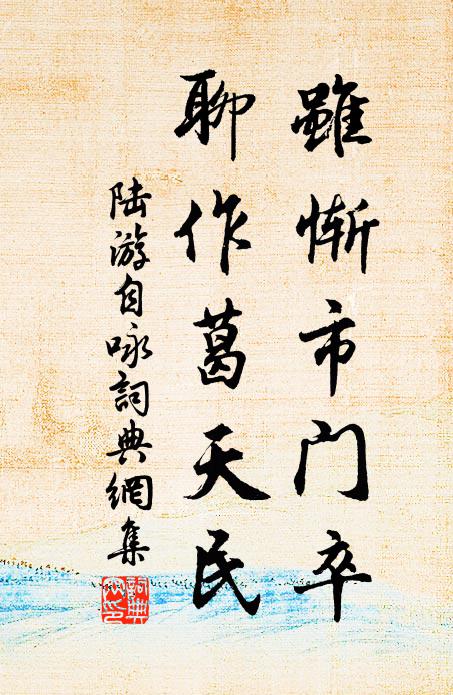 雖惭市门卒
聊作葛天民
陆游自咏詞典網集